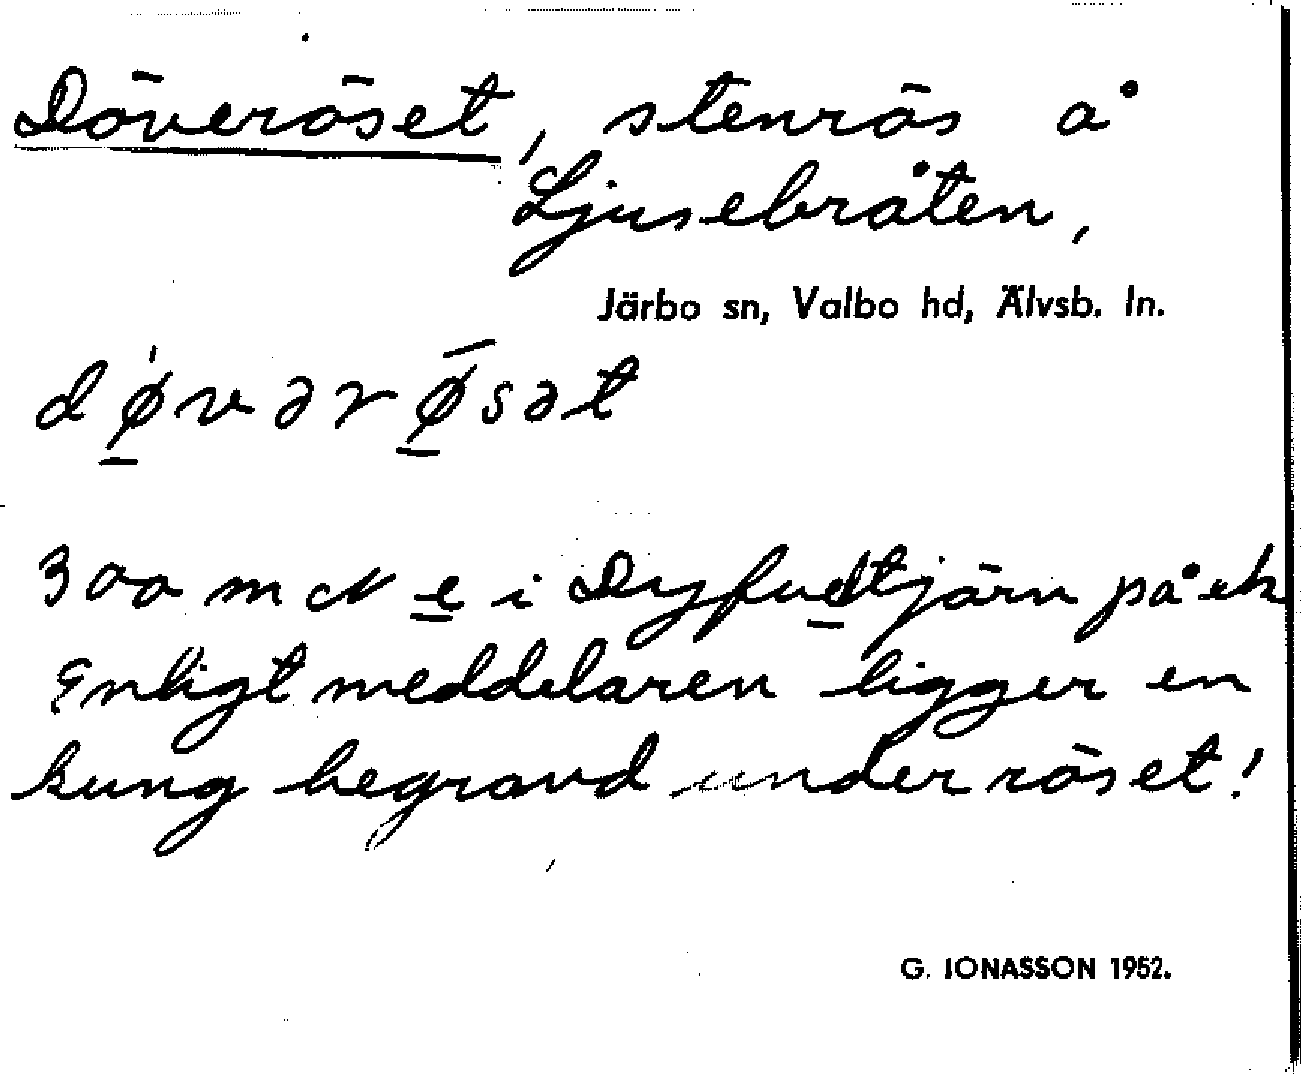 Döveröset, stenrös å
Ljusebråten,
Järbo sn, Valbo hd, Älvsb. ln.
døvərøsət
300 m N e i Dyfudtjärn på ek
Enligt meddelaren ligger en
kung begravd under röset!
G. IONASSON 1952.